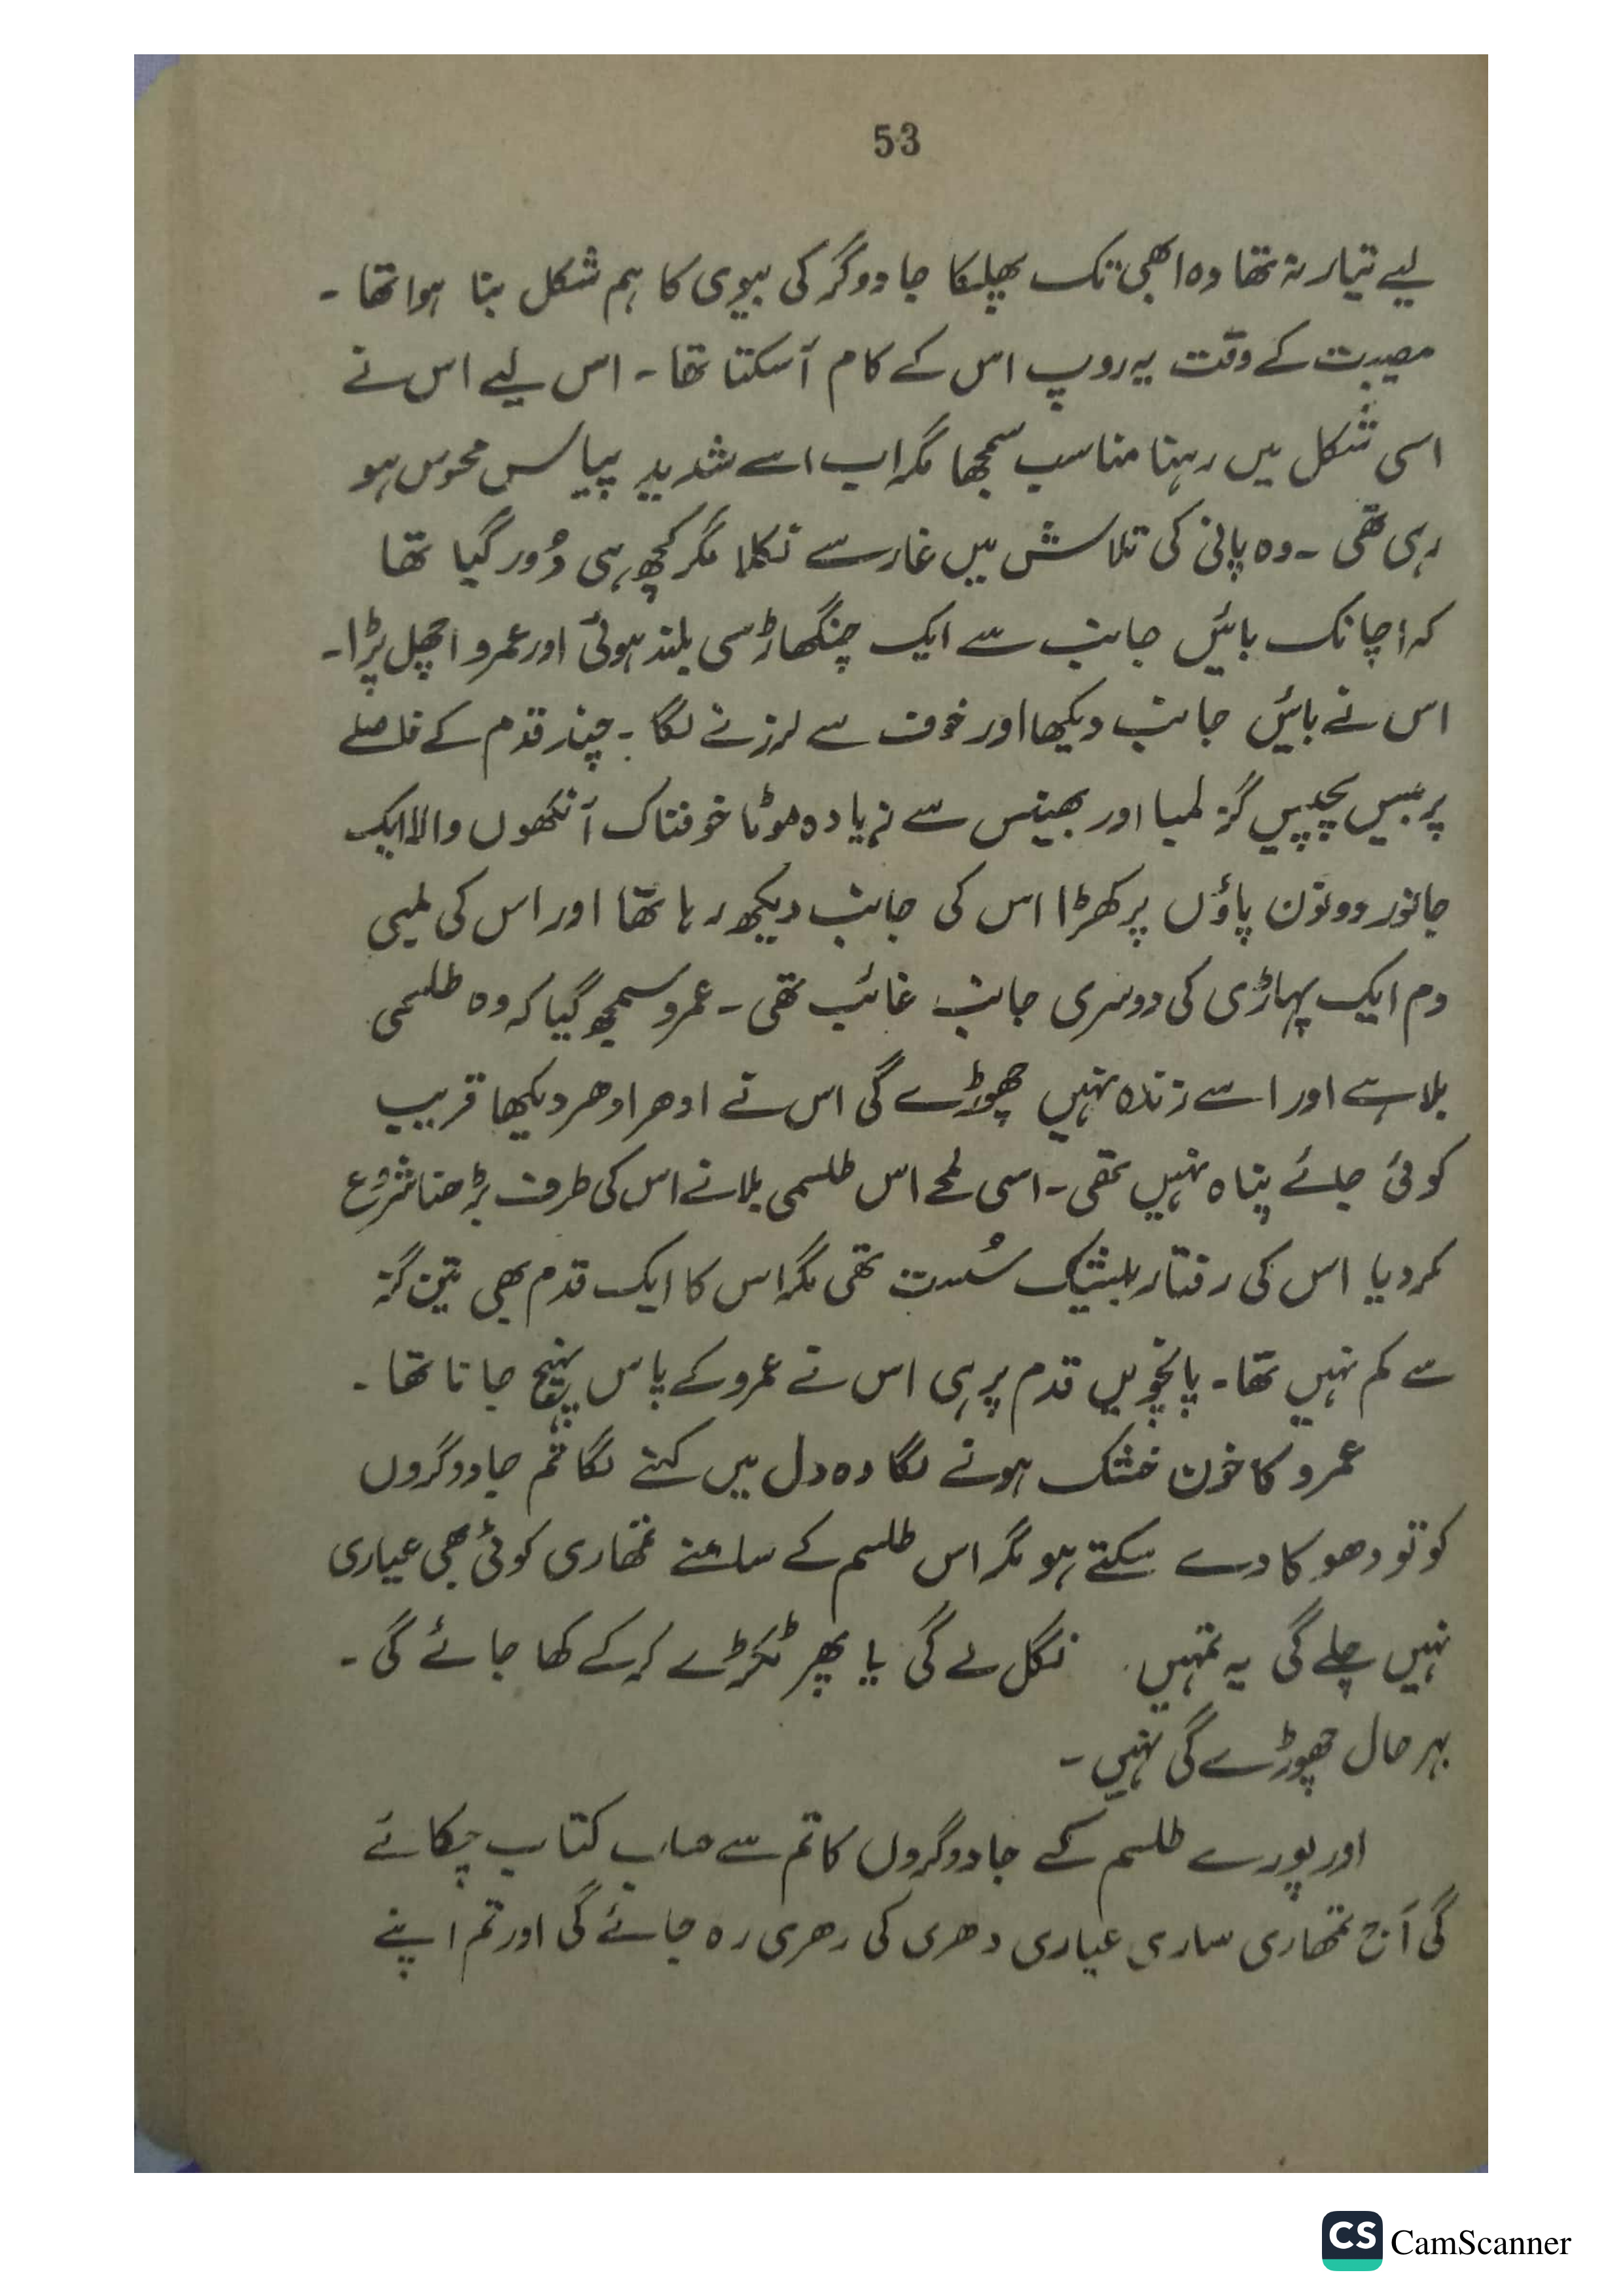 53
لیے تیار نہ تھا وہ ابھی تک پھلکا جادوگر کی بیوی کا ہم شکل بنا ہوا تھا ۔
مصیبت کے وقت یہ روپ اس کے کام آسکتا تھا ۔ اس لیے اس نے
اسی شکل میں رہنا مناسب سمجھا مگر اب اسے شدید پیاس محوس ہو
رہی تھی ۔ وہ پانی کی تلاش میں غار سے نکلا مگر کچھ ہی دُور گیا تھا
کہ اچانک بائیں جانب سے ایک چنگھاڑ سی بلند ہوئی اور عمرو اچھل پڑا۔
اس نے بائیں جانب دیکھا اور خوف سے لرزنے لگا ۔ چند قدم کے فاصلے
پر بیس پچپیس گز لمبا اور بھینس سے زیادہ موٹا خوفناک آنکھوں والا ایک
جانور دونوں پاؤں پر کھڑا اس کی جانب دیکھ رہا تھا اور اس کی لمبی
دم ایک پہاڑی کی دوسری جانب غائب تھی ۔ عمرو سمجھ گیا کہ وہ طلسمی
بلا ہے اور اسے زندہ نہیں چھوڑے گی اس نے ادھر ادھر دیکھا قریب
کوئی جائے پناہ نہیں تھی ۔ اسی لمحے اس طلسمی بلا نے اس کی طرف بڑھنا شروع
کر دیا اس کی رفتار بلیشک سُست تھی مگر اس کا ایک قدم بھی تین گز
سے کم نہیں تھا ۔ پانچویں قدم پر ہی اس نے عمرو کے پاس پہنچ جانا تھا ۔
عمرو کا خون خشک ہونے لگا وہ دل میں کہنے لگا تم جادوگروں
کو تو دھوکا دے سکتے ہو مگر اس طلسم کے سامنے تمھاری کوئی بھی عیاری
نہیں چلے گی یہ تمہیں نگل لے گی یا پھر ٹکڑے کر کے کھا جائے گی ۔
بہر حال چھوڑے گی نہیں ۔
اور پورے طلسم کے جادوگروں کا تم سے حساب کتاب چکائے
گی آج تمھاری ساری عیاری دھری کی دھری رہ جائے گی اور تم اپنے
CS CamScanner